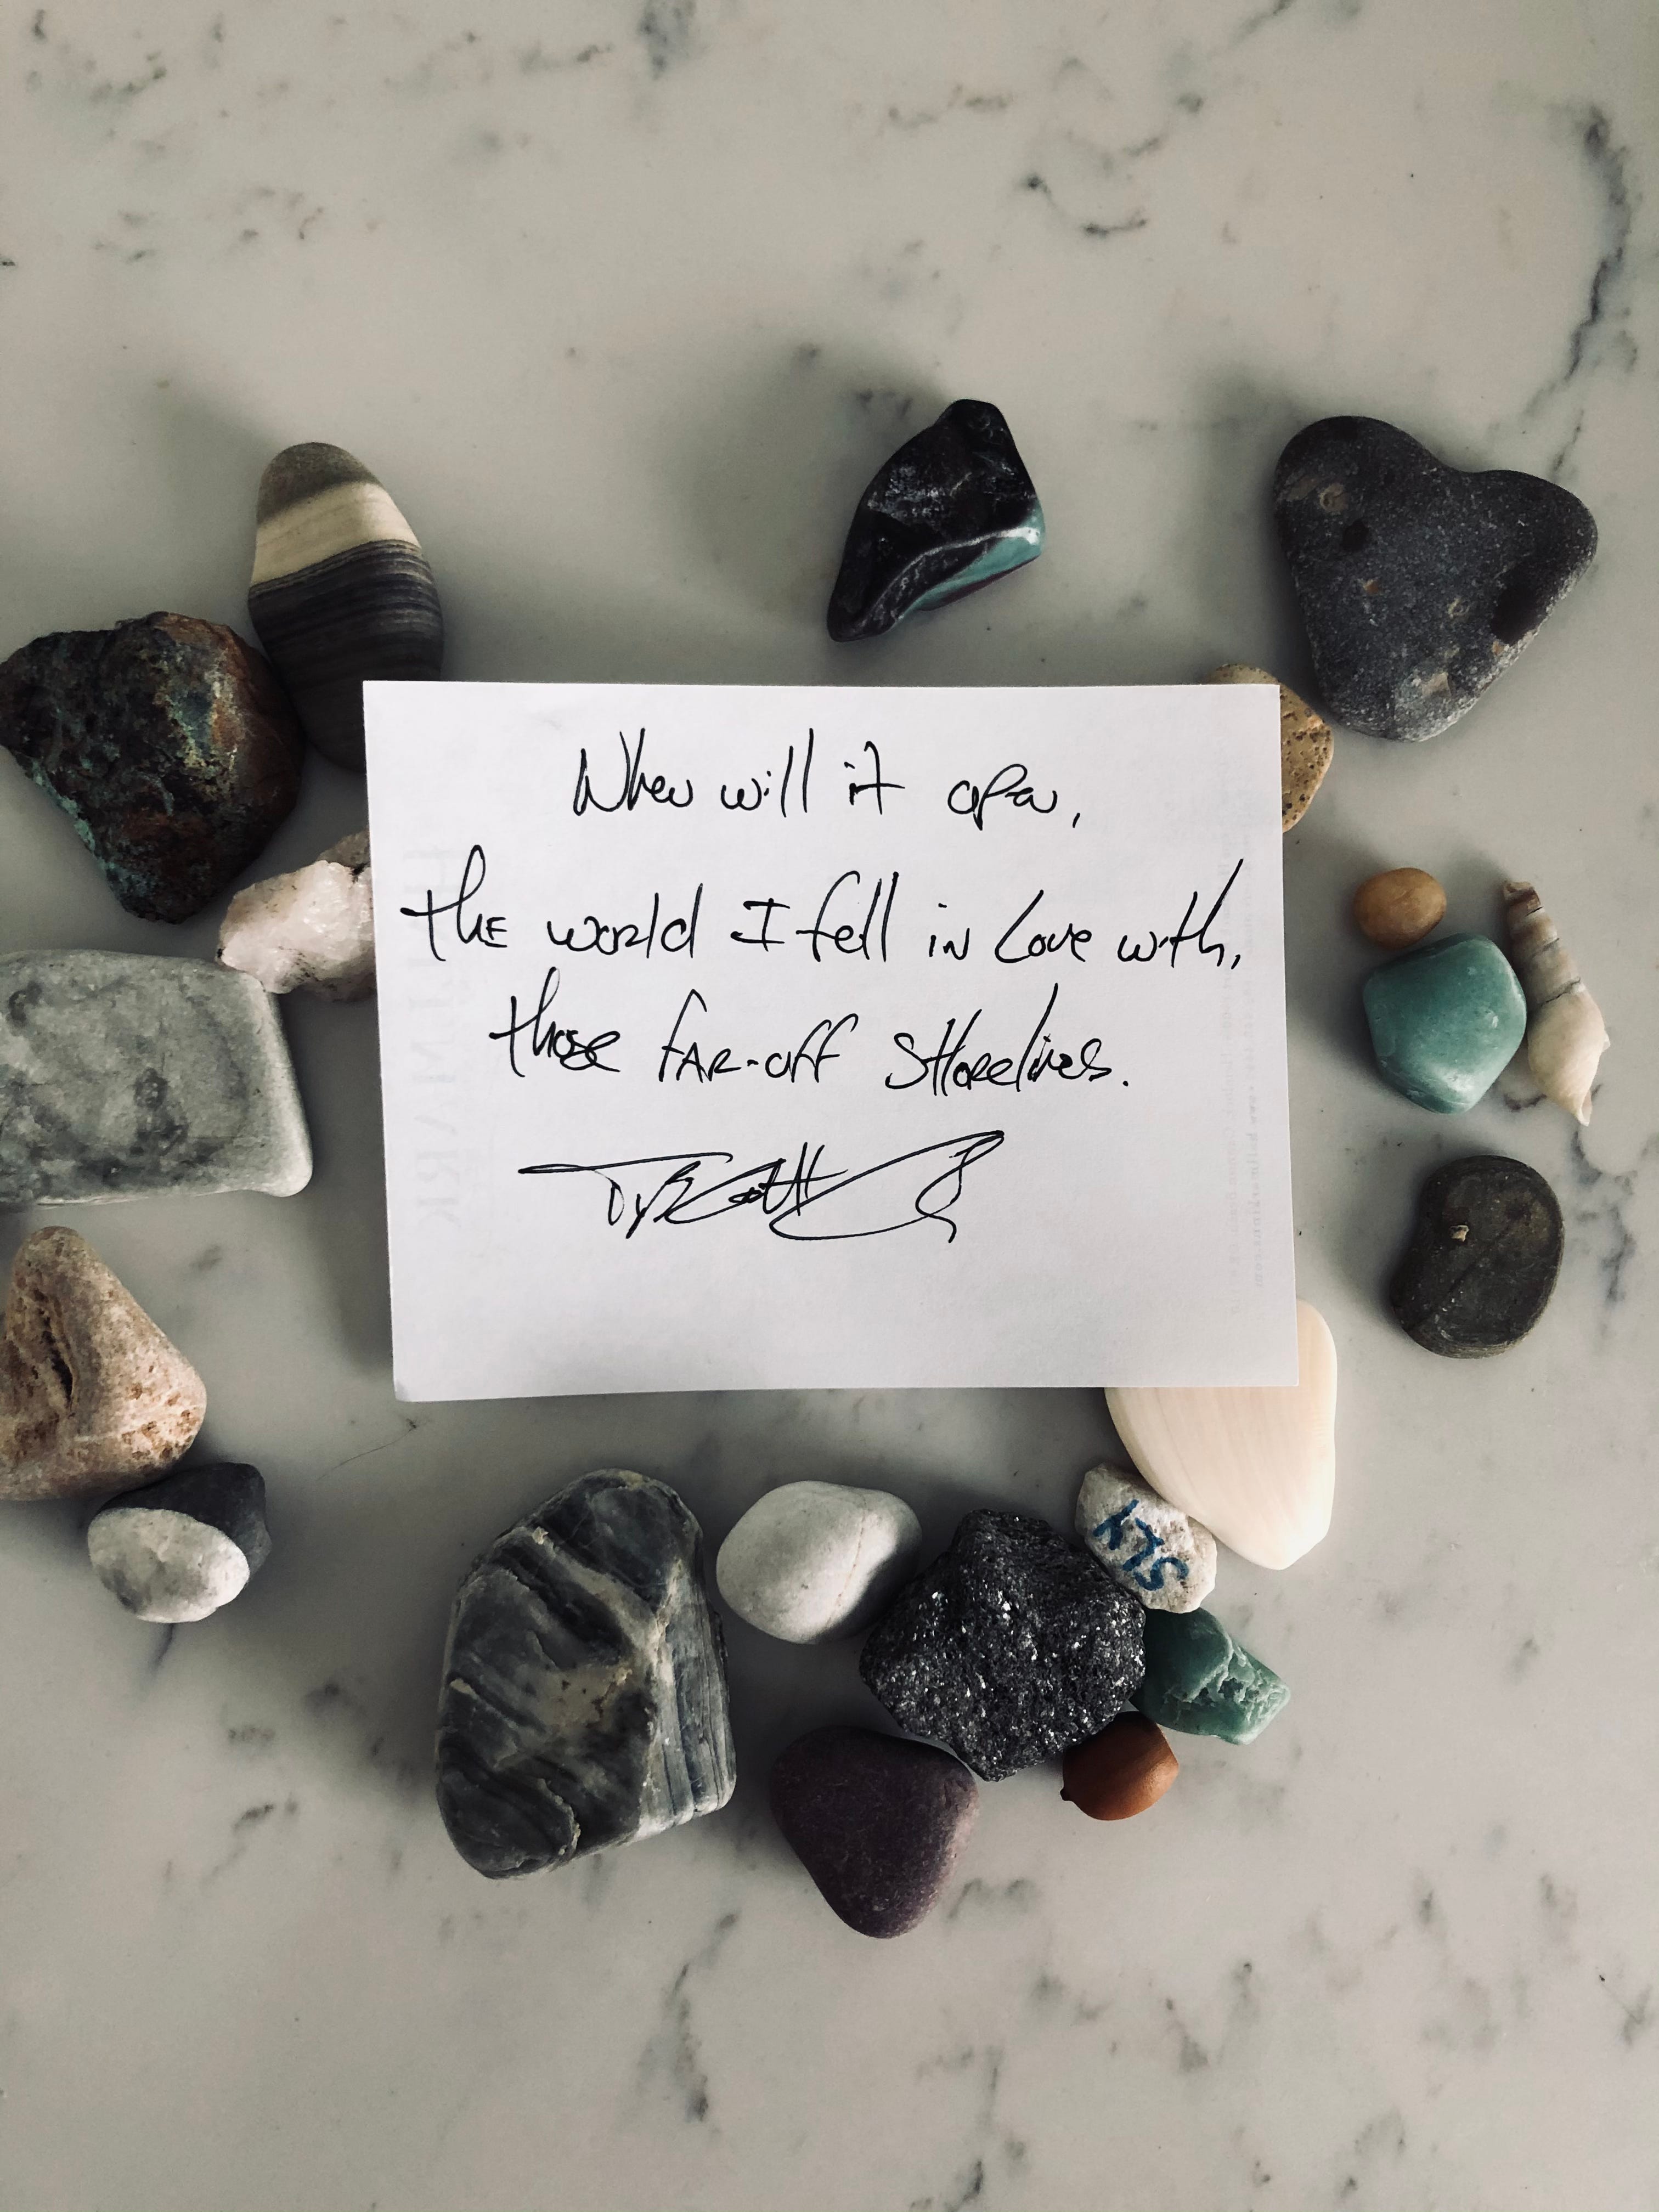 When will it open,
the world I fell in Love with,
those far-off Shorelines.